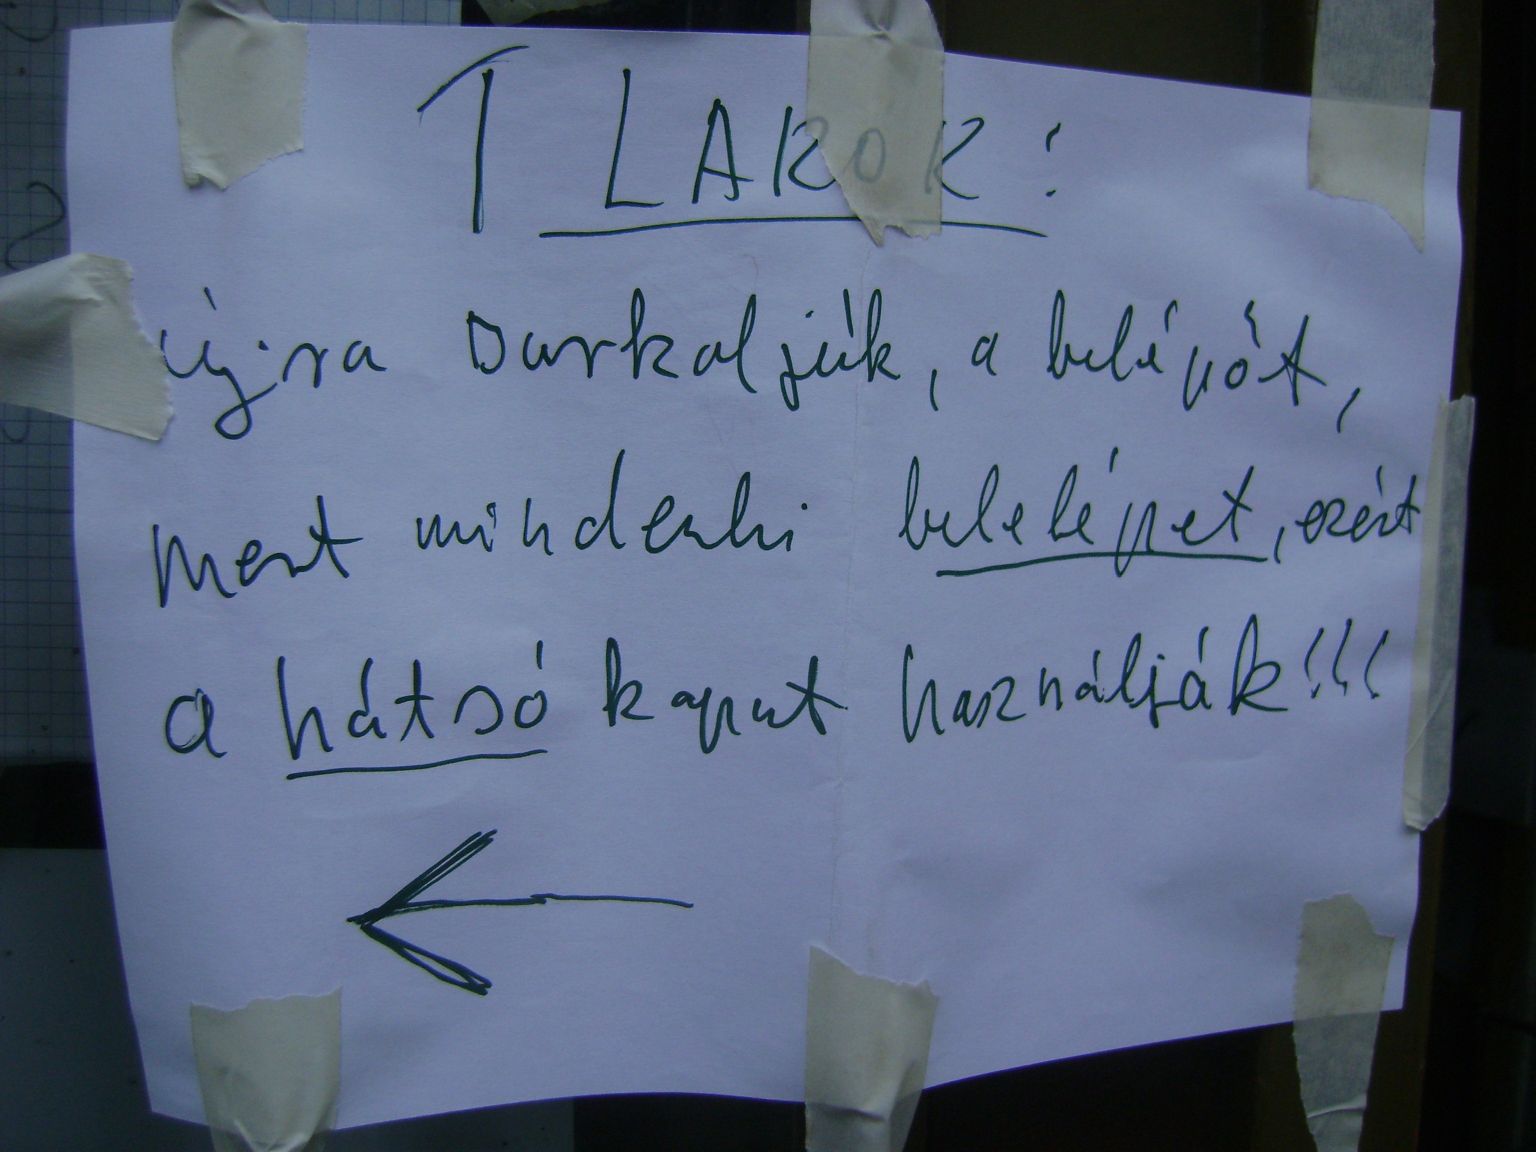 T LAKÓK:
újra burkoljuk, a belépőt,
mert mindenki belelépet, ezért
a hátsó kaput használják!!!